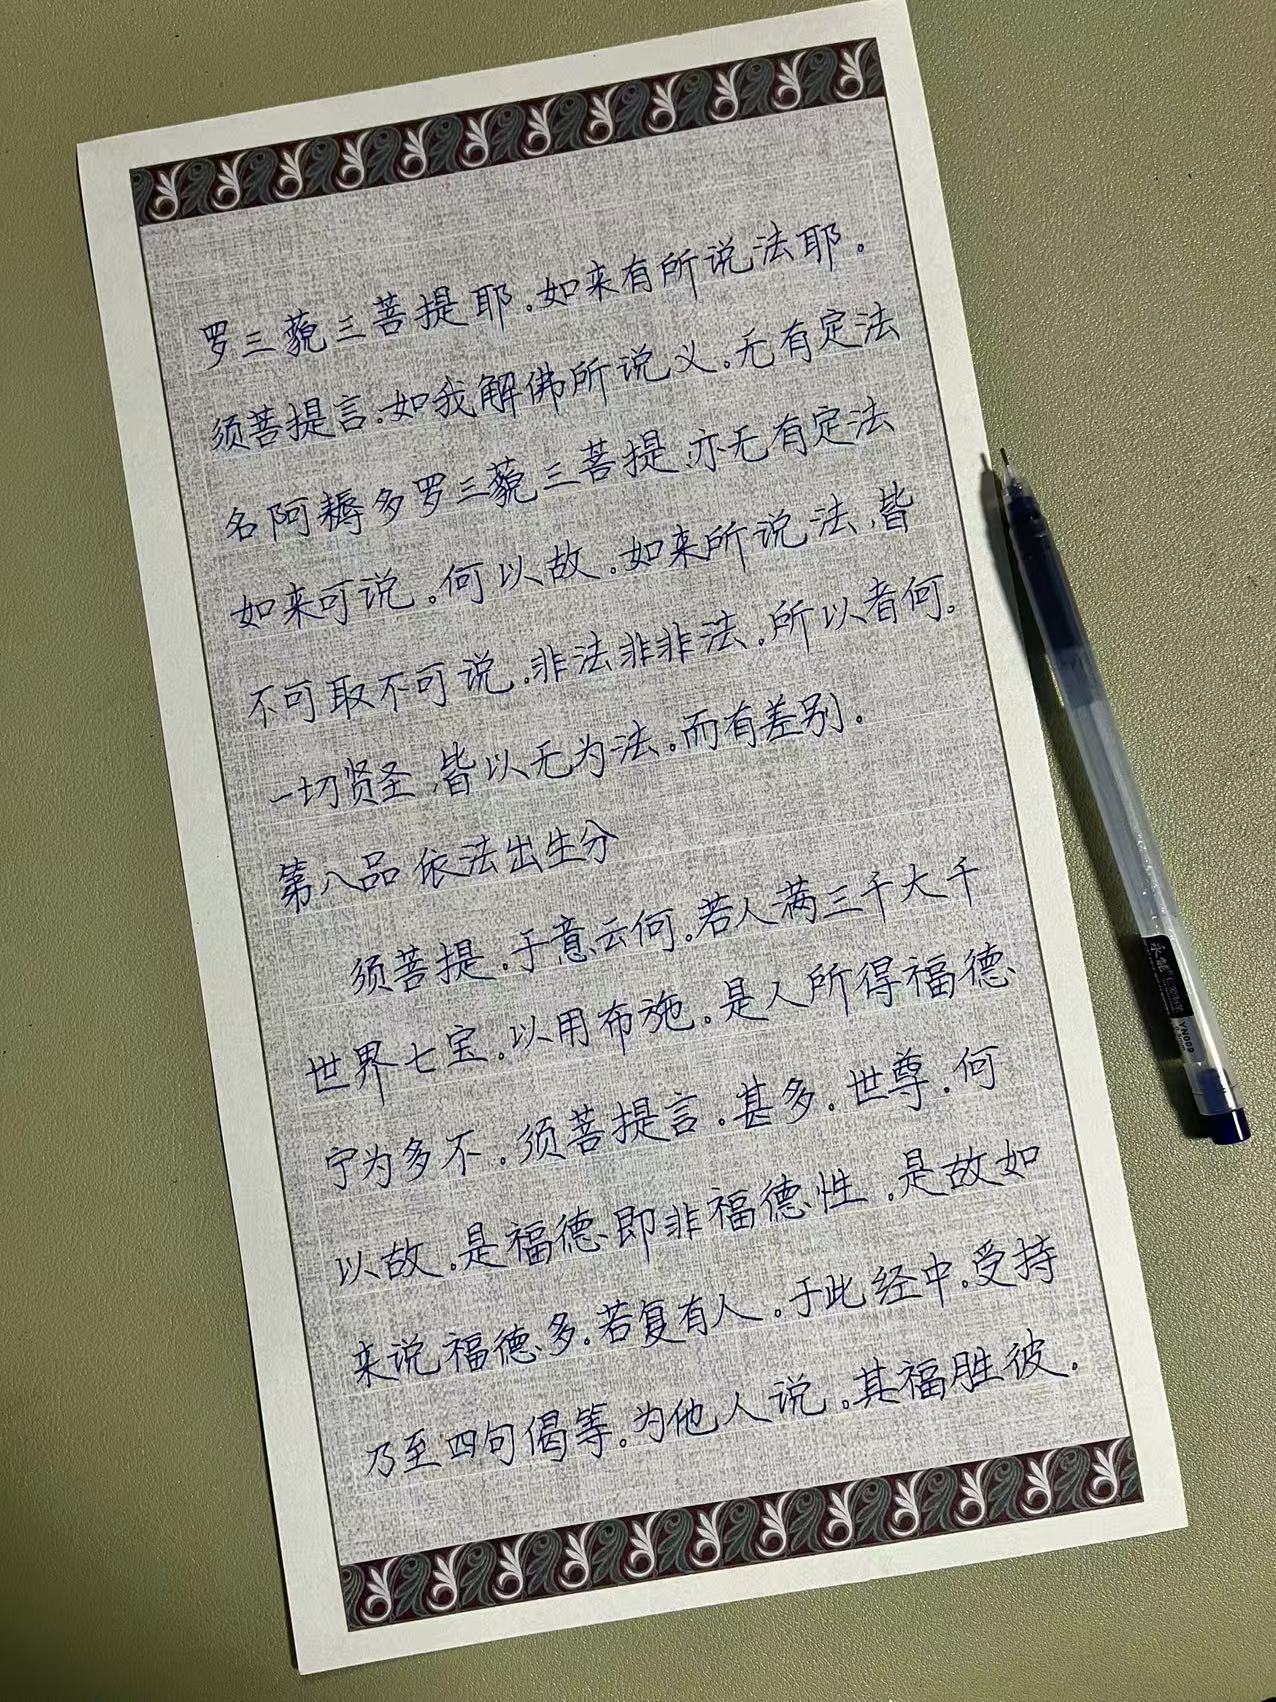 罗三藐三菩提耶。如来有所说法耶。
须菩提言。如我解佛所说义。无有定法
名阿耨多罗三藐三菩提、亦无有定法
如来可说。何以故。如来所说法、皆
不可取不可说。非法非非法。所以者何。
一切贤圣、皆以无为法。而有差别。
第八品 依法出生分
须菩提。于意云何。若人满三千大千
世界七宝。以用布施。是人所得福德、
宁为多不。须菩提言。甚多。世尊。何
以故。是福德、即非福德性。是故如
来说福德多。若复有人。于此经中。受持
乃至四句偈等。为他人说。其福胜彼。
永能
YN009